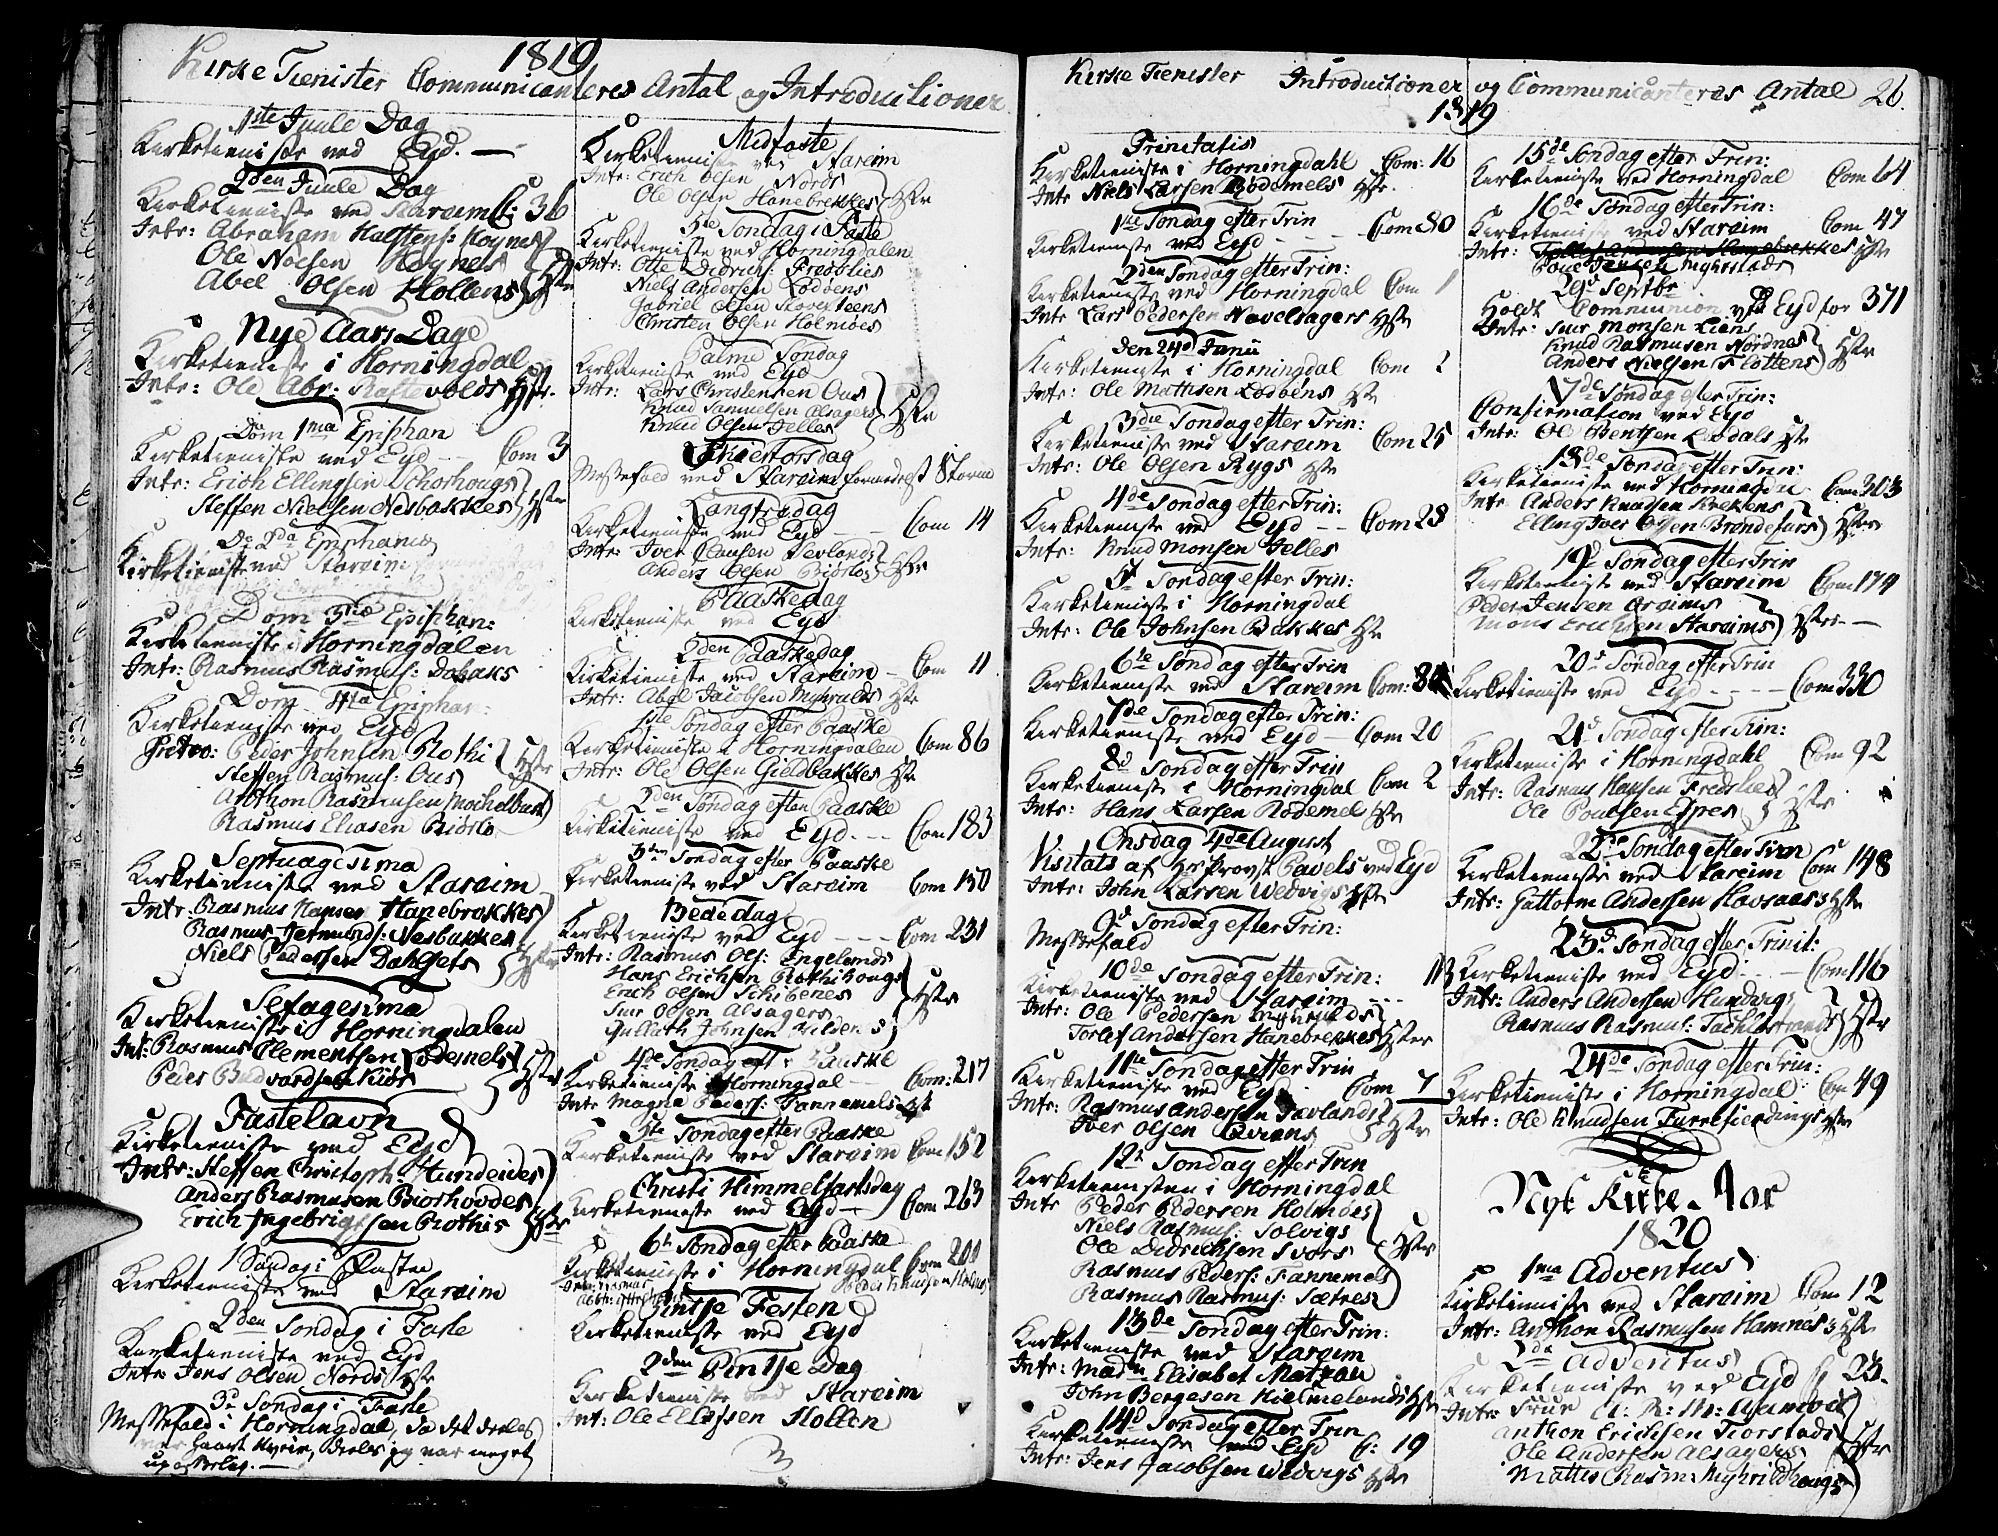 1819
Kirke Tienister Communicanteres Antal og Introductioner
1ste Juule Dag
Kirketieniste ved Eyd. —
2den Juule Dag
Kirketieniste ved Stareim C: 36
Intr: Abraham Halstens: Hoynes
Ole Nielsen Hoynes
Abel Olsen Hollens Hstr
Nye Aars Dag
Kirketieniste i Horningdal
Intr: Ole Abr: Raftevolds Hstr.
Dom 1ma Epiphan
Kirketieniste ved Eyd -- Com 3
Intr: Erich Ellingsen Schorhougs
Steffen Nielsen Nesbakkes Hstr
De 2da Epiphania
Kirketieniste ved Stareim
Dom 3tia Epiphan:
Kirketieniste i Horningdalen
Intr: Rasmus Rasmus: Dobaks
Dom 4ta Epiphan:
Kirketieniste ved Eyd
Intro: Peder Johnsen Rothi
Steffen Rasmus: Ous Hstr
Anthon Rasmusen Mochelbust
Rasmus Eliasen Biørlo
Septuagesima
Kirketieniste ved Stareim
Intr. Rasmus Hansen Hanebrekkes
Rasmus Jermunds: Nesbakkes
Niels Pedersen Dahlsets Hstr
Sexagesima
Kirketieniste i Horningdalen
Int: Rasmus Clementsen Lødemels
Peder Hstr
Fastelavn
Kirketieniste ved Eyd
Intr: Steffen Christoph: Hundeides
Anders Rasmusen Biørhovdes
Erich Ingebrigtsen Rothis Hstr
1 Søndag i Fasten
Kirketieniste ved Stareim
2den Søndag i Faste
Kirketieniste ved Eyd
Intr: Jens Olsen Nords Hstr
3die Søndag i Faste
Messefald i Horningdal, da det deeles
var haart Veyr, deeles jeg var meget
upasselig. —
Midfaste
Kirketieniste ved Stareim
Intr: Erich Olsen Nords
Ole Olsen Hanebrekkes Hstr
5te Søndag i Faste
Kirketieniste ved Horningdalen
Intr: Otte Didrichs: Fredslies
Niels Andersen Lødøens
Gabriel Olsen
Christen Olsen Holmøes
Palme Søndag
Kirketieniste ved Eyd
Intr: Lars Christensen Ous
Knud Samuelsen Alsagers Hstr
Knud Olsen Jelles
Skiertorsdag
Messefald ved Stareim formedelst Storm
Langfredag
Kirketieniste ved Eyd -- Com 14
Intr: Iver Clausen Sevlands
Anders Olsen Biørlos Hstr
Paaskedag
Kirketieniste ved Eyd
2den Paaskedag
Kirketieniste ved Stareim - Com 11
Intr: Abel Jacobsen Myhrolds Hstr
1ste Søndag efter Paaske
Kirketieniste i Horningdalen Com 86
Intr: Ole Olsen Gieldbakkes Hstr
2den Søndag efter Paaske
Kirketieniste ved Eyd --- Com 183
3den Søndag efter Paaske
Kirketieniste ved Stareim Com 150
Bededag
Kirketieniste ved Eyd --- Com 231
Intr: Rasmus Ols: Engelends
Hans Erichsen Rothihougs
Erich Olsen Schibenes Hstr
Siur Olsen Alsagers
Gulleth Johnsen
4de Søndag eft: Pauske
Kirketieniste Horningdal — Com: 217
Intr Magne Peders: Tannemels Hst
5te Søndag efter Paaske
Kirketieniste ved Stareim Com 152
Christi Himmelfartsdag
Kirketieniste ved Eyd — Com 263
6te Søndag efter Paaske
Kirketieniste i Horningdal Com 200
Peder Knudsen
Pintse Festen
Kirketieniste ved Eyd
2den Pintse Dag
Kirketieniste ved Stareim
Int: Ole Ellefsen Hollen
Kirke Tienister Introductioner og Communicanteres Antal 26.
1819
Trinitatis
Kirketieniste i Horningdahl Com: 16
Intr Niels Larsen Rødemels Hstr.
1ste Søndag efter Trin
Kirketieniste ved Eyd ---- Com 80
2den Søndag efter Trin:
Kirketieniste ved Horningdal Com 1
Intr Lars Pedersen Navelsagers Hstr
Den 24d Junii
Kirketieniste i Horningdal Com 2
Intr: Ole Mathisen Lødøens Hstr
3die Søndag efter Trin:
Kirketieniste ved Stareim Com 25
Intr: Ole Olsen Rygs Hstr
4de Søndag efter Trin:
Kirketieniste ved Eyd -- Com 28
Intr: Knud Monsen Jelles
5t Søndag efter Trin:
Kirketieniste i Horningdal
Intr: Ole Johnsen Bakkes Hstr
6te Søndag efter Trin
Kirketieniste ved Stareim Com: 84
7de Søndag efter Trin:
Kirketieniste ved Eyd — Com 20
8d Søndag efter Trin
Kirketieniste i Horningdal Com 2
Intr: Hans Larsen Rødemel Hstr
Onsdag 4de August
Visitats af Hr Provst Pavels ved Eyd
Intr: John Larsen Wedvigs Hstr
9d Søndag efter Trin:
Messefald
10de Søndag efter Trin: 113
Kirketieniste ved Stareim ---
Intr: Ole Pedersen Myhrolds
Torlef Andersen Hanebrekkes Hstr
11te Søndag efter Trin
Kirketieniste ved Eyd - Com 7
Intr: Rasmus Andersen Sevlands
Iver Olsen Hstr
12t Søndag efter Trin
Kirketienisten i Horningdal
Intr Peder Pedersen Holmøes
Niels Rasmus: Solvigs
Ole Didrichsen Svors Hstr
Rasmus Peders: Tannemels
Rasmus Rasmus: Sætres
13de Søndag efter Trin:
Kirketieniste ved Stareim
Intr: Madm Elisabet Matzau
John Børgesen Hielmelands Hstr
14d Søndag efter Trin
Kirketieniste ved Eyd C: 19
Intr: Jens Jacobsen Wedvigs Hstr
15de Søndag efter Trin:
Kirketieniste ved Horningdal Com 64
16de Søndag efter Trin:
Kirketieniste ved Stareim Com 47
Intr: Hanebrekkes Hstr
Poul Jensen Myhrstads
29d Septbr
Holdt Communion ved Eyd for 371
Intr: Siur Monsen Liens
Knud Rasmusen Nordnes
Anders Nielsen Flottens Hstr
17de Søndag efter Trin:
Confirmation ved Eyd
Intr: Ol Bentsen Lødals Hstr
18de Søndag efter Trin:
Kirketieniste ved Horningdal Com 303
Intr Anders Knudsen Krekens
Elling Iver Olsen Brøndefurs Hstr
19d Søndag efter Trin
Kirketieniste ved Stareim Com 179
Peder Jensen Aroims
Mons Erichsen Stareims Hstr —
20t Søndag efter Trin
Kirketieniste ved Eyd ---- Com 330
21d Søndag efter Trin:
Kirketieniste i Horningdahl Com 92
Intr: Rasmus Hansen Fredslies
Ole Poulsen Espes Hstr
22de Søndag efter Trin
Kirketieniste ved Stareim Com 148
Intr: Guttorm Andersen Havraas Hstr
23d Søndag efter Trinit:
Kirketieniste ved Eyd --- Com 116
Intr: Anders Andersen Hundvigs
Rasmus Rasmus: Hstr
24de Søndag efter Trin:
Kirketieniste i Horningdal Com 49
Intr: Ole Knudsen Hstr
Nyt Kirke-Aar
1820
1ma Adventus
Kirketieniste ved Stareim Com 12
Intr: Anthon Rasmusen Hamnes Hstr
2da Adventus
Kirketieniste ved Eyd C: 23.
Intr: Frue A: R: M: Aamodt
Anthon Erichsen Tiorstads
Ole Andersen Alsagers Hstr
Mattis Rasm: Myhrildhougs